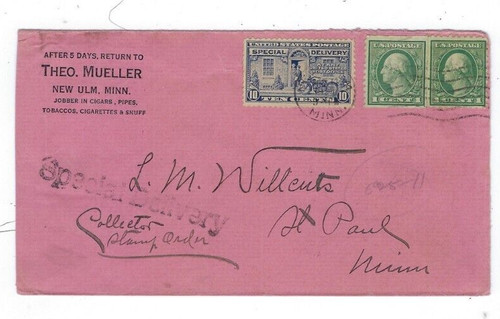 AFTER 5 DAYS, RETURN TO
THEO. MUELLER
NEW ULM, MINN.
JOBBER IN CIGARS, PIPES,
TOBACCOS, CIGARETTES & SNUFF
UNITED STATES POSTAGE
SPECIAL DELIVERY
10 TEN CENTS 10
1 CENT 1
1 CENT 1
MINN
Special Delivery
L. M. Willcuts
St Paul
Minn
Collector
Stamp Order